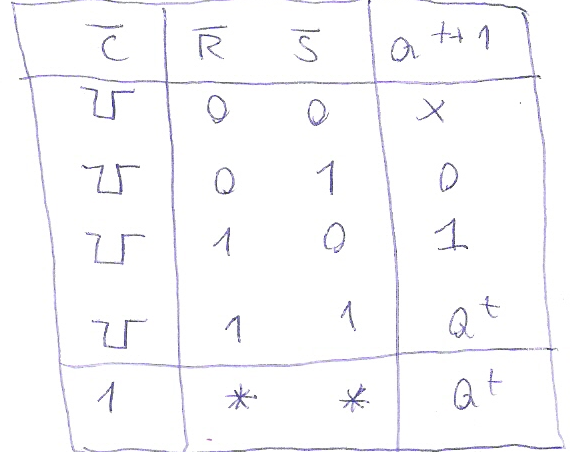 C̅ R̅ S̅ Q^t+1
0 0 x
0 1 0
1 0 1
1 1 Q^t
1 * * Q^t